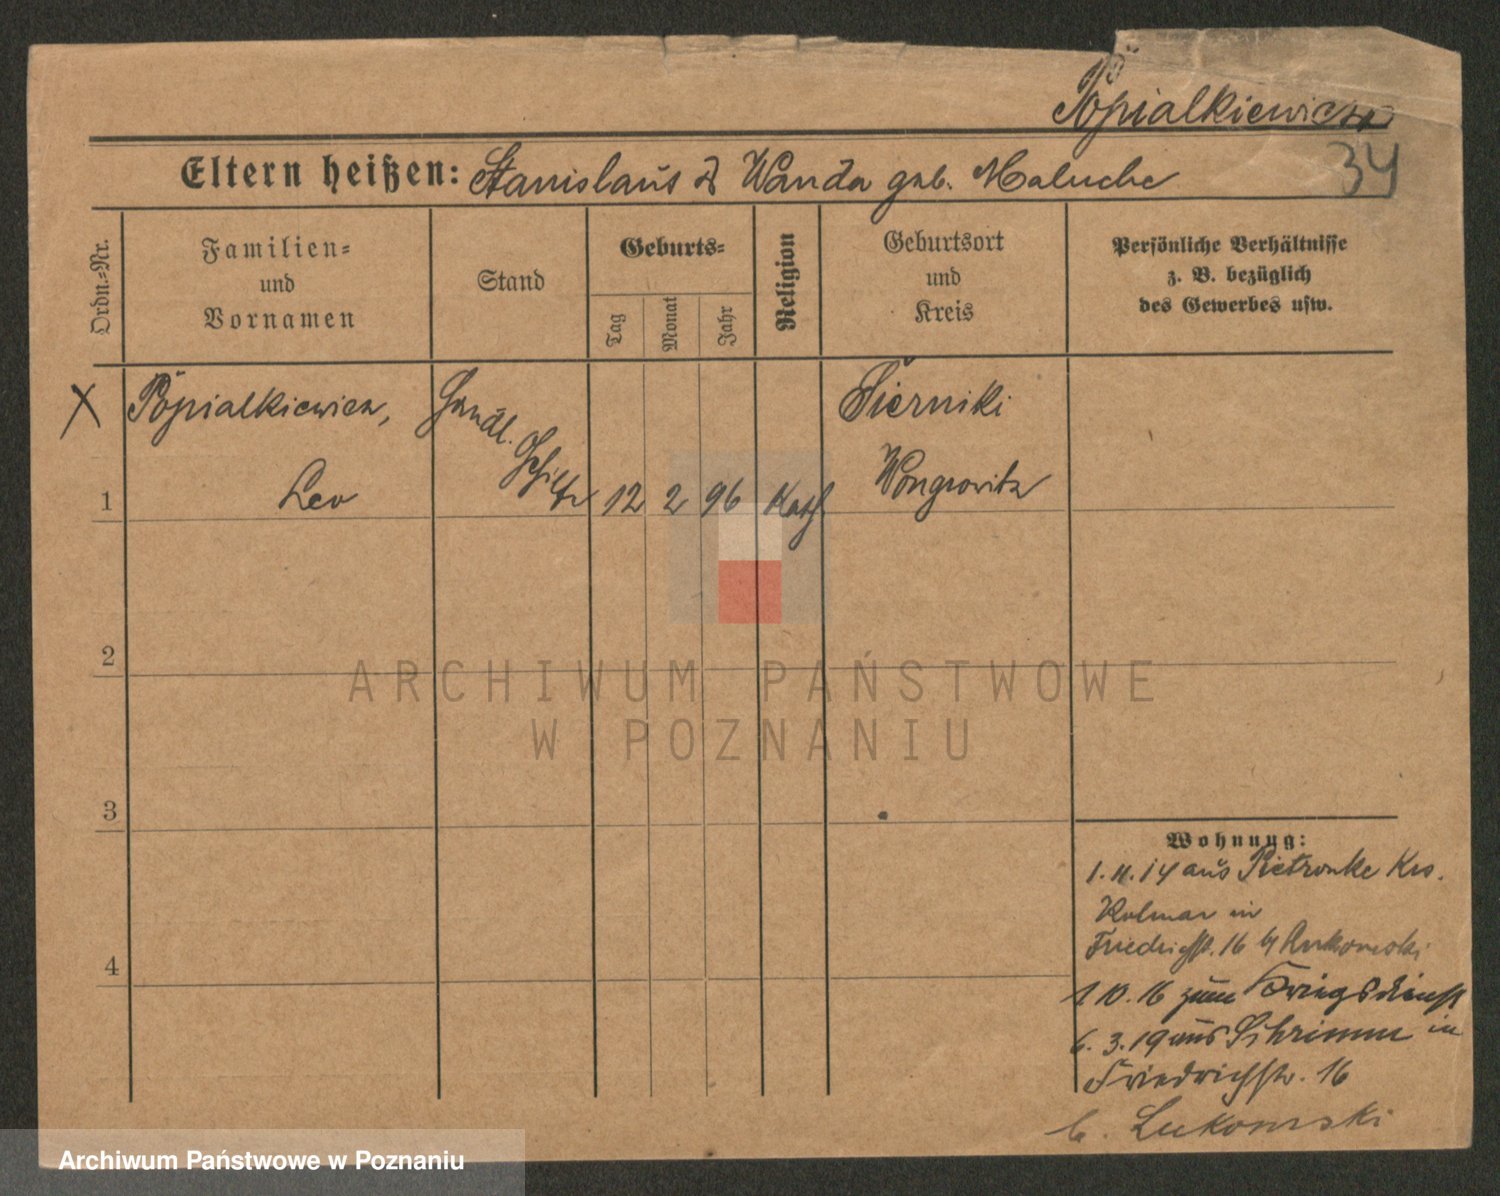 Popialkiewicz
Eltern heißen: Stanislaus & Wanda geb. Maluche
34
Ordn.-Nr.
Familien-
und
Vornamen
Stand
Geburts-
Tag
Monat
Jahr
Religion
Geburtsort
und
Kreis
Persönliche Verhältnisse
z. B. bezüglich
des Gewerbes usw.
X
Popialkiewicz,
Leo
Handl.
1
12 2 96 Kath
Sierniki
Wongrowitz
2
3
4
Wohnung:
1.4.14 aus Pietronke Krs.
Kolmar in
Friedrichstr. 16 b/
1 10.16 zum Kriegsdienst
6.3.19 aus Schrimm in
Friedrichstr. 16
b. Lukomski
ARCHIWUM PAŃSTWOWE
W POZNANIU
Archiwum Państwowe w Poznaniu